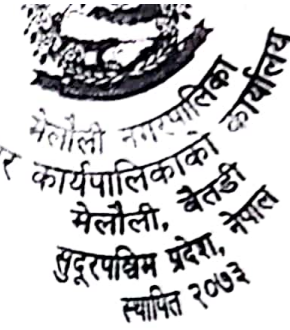 मेलौली नगरपालिका
र कार्यपालिकाको कार्यालय
मेलौली, बैतडी
सुदूरपश्चिम प्रदेश, नेपाल
स्थापित २०७३